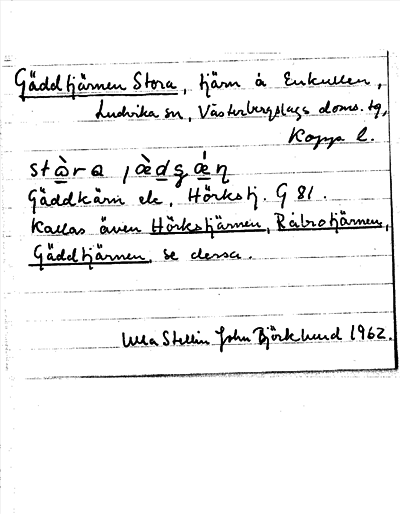 Gäddtjärnen Stora, tjärn å Enkullen,
Ludvika sn, Västerbergslags doms. tg,
Kopp. l.
Gäddkärn etc, Hörkstj. G 81.
Kallas även Hörkstjärnen, Råbrotjärnen,
Gäddtjärnen, se dessa.
Ulla Stellin John Björklund 1962.